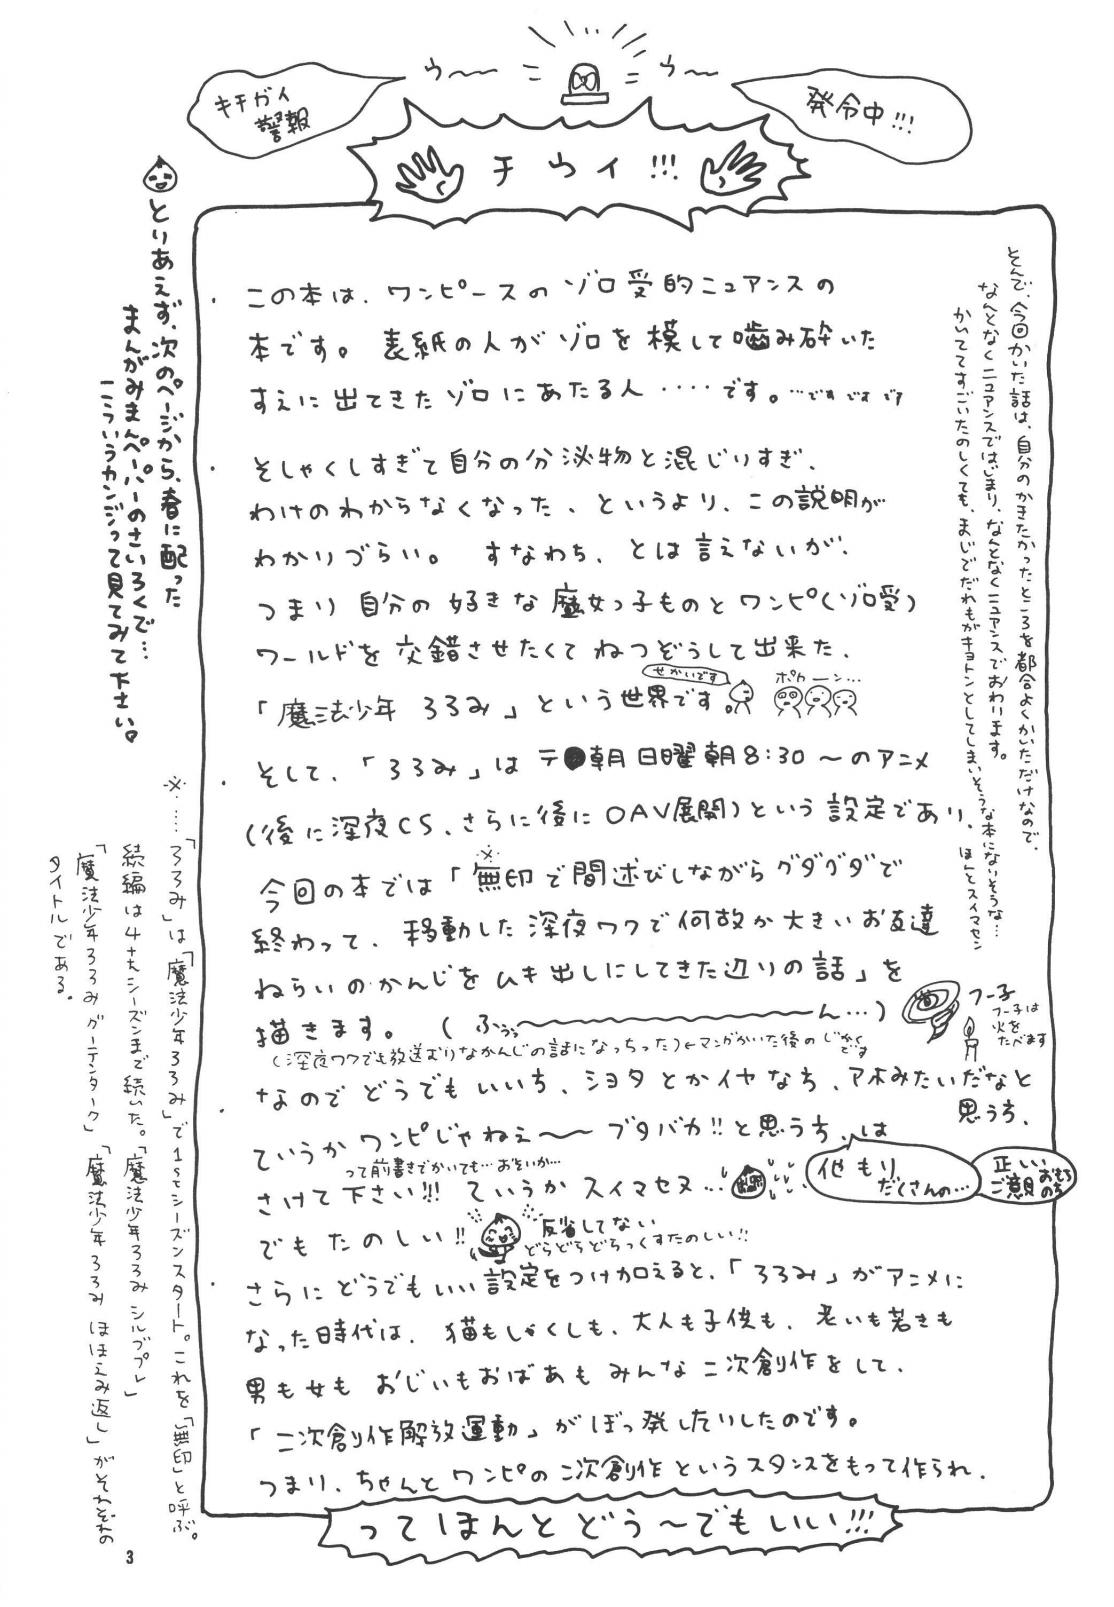 キチガイ
警報
ウ〜〜
ウ〜〜
発令中!!!
チウイ!!!
・この本は、ワンピースのゾロ受的ニュアンスの
本です。表紙の人がゾロを模して噛み砕いた
すえに出てきたゾロにあたる人‥‥です。…ですですです
・そしゃくしすぎて自分の分泌物と混じりすぎ、
わけのわからなくなった、というより、この説明が
わかりづらい。すなわち、とは言えないが、
つまり自分の好きな魔女っ子ものとワンピ(ゾロ受)
ワールドを交錯させたくてねつぞうして出来た、
「魔法少年ろろみ」という世界です。
せかいです
ポカーン…
・そして、「ろろみ」はテ●朝日曜朝8:30〜のアニメ
(後に深夜CS、さらに後にOAV展開)という設定であり、
今回の本では「無印で間述びしながらグダグダで
※
終わって、移動した深夜ワクで何故か大きいお友達
ねらいのかんじをムキ出しにしてきた辺りの話」を
描きます。(ふぅぅ〜〜〜ん…)
(深夜ワクでも放送ムリなかんじの話になっちった)←マンガかいた後のじかくです
フー子
フー子は
火を
たべます
・なのでどうでもいいち、ショタとかイヤなち、アホみたいだなと
思うち、
ていうかワンピじゃねぇ〜〜ブタバカ!!と思うち、は
って前書きでかいても…おそいか…
さけて下さい!!!ていうかスイマセヌ…
他もり
だくさんの…
正しい
ご意見
おもち
のち
でもたのしい!!
反省してない
どらどらどらっくすたのしい!!
・さらにどうでもいい設定をつけ加えると、「ろろみ」がアニメに
なった時代は、猫もしゃくしも、大人も子供も、老いも若きも
男も女もおじいもおばあもみんな二次創作をして、
「二次創作解放運動」がぼっ発したりしたのです。
つまり、ちゃんとワンピの二次創作というスタンスをもって作られ、
ってほんとどう〜でもいい!!!
とんで、今回かいた話は、自分のかきたかったところを都合よくかいただけなので、
なんとなくニュアンスではじまり、なんとなくニュアンスでおわります。
かいててすごいたのしくても、まじでだれもがキョトンとしてしまいそうな本にないそうな…ほんとスイマセン
とりあえず、次のページから、春に配った
まんがみまんペーパーのさいろくで…
こういうカンジって見てみて下さい。
※……「ろろみ」は「魔法少年ろろみ」で1stシーズンスタート。これを「無印」と呼ぶ。
続編は4thシーズンまで続いた。「魔法少年ろろみシルブプレ」
「魔法少年ろろみグーテンターク」「魔法少年ろろみほほえみ返し」がそれぞれの
タイトルである。
3